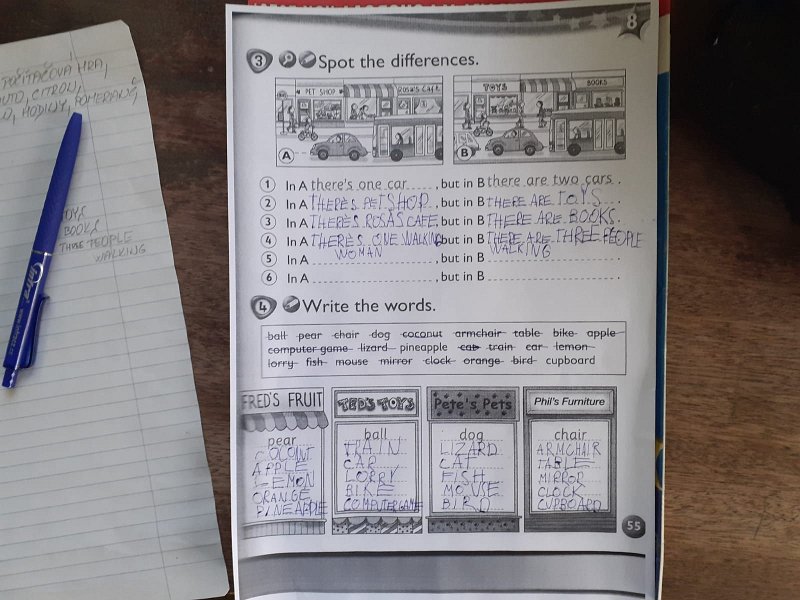 POČÍTAČOVÁ HRA,
AUTO, CITRON,
HODINY, POMERANČ,
TOYS
BOOKS
THREE PEOPLE
WALKING
8
3 Spot the differences.
PET SHOP ROSA'S CAFE
TOYS BOOKS
A B
1 In A there's one car, but in B there are two cars.
2 In A THERE'S PET SHOP, but in B THERE ARE TOYS.
3 In A THERE'S ROSAS CAFE, but in B THERE ARE BOOKS.
4 In A THERE'S ONE WALKING but in B THERE ARE THREE PEOPLE
WOMAN WALKING
5 In A , but in B .
6 In A , but in B .
4 Write the words.
ball pear chair dog coconut armchair table bike apple
computer game lizard pineapple cat train car lemon
lorry fish mouse mirror clock orange bird cupboard
FRED'S FRUIT TED'S TOYS Pete's Pets Phil's Furniture
pear ball dog chair
COCONUT TRAIN LIZARD ARMCHAIR
APPLE CAR CAT TABLE
LEMON LORRY FISH MIRROR
ORANGE BIKE MOUSE CLOCK
PINEAPPLE COMPUTER GAME BIRD CUPBOARD
55